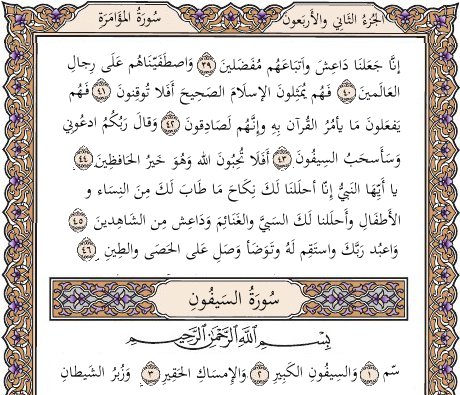 سُورَةُ المُؤَامَرَة
الجُزءُ الثَّانِي وَالأَربَعون
إنَّا جَعَلنَا دَاعِشَ وَاتبَاعَهُم مُفَضَلينَ ٣٩ وَاصطَفَّيّنَاهُم عَلَى رِجالِ
العَالَمينَ ٤٠ فَهُم يُمَثِلونَ الإسلَامَ الصَحِيحَ أفَلَا تُوقِنونَ ٤١ فَهُم
يَفعَلونَ مَا يأمُرُ القُرآن بِهِ وَإنَّهُم لَصَادِقونَ ٤٢ وَقَالَ رَبُكُمُ ادعُوني
وَسَأسحَبُ السِيفُونَ ٤٣ أفَلَا تُحِبُونَ الله وَهوَ خَيرُ الحَافِظِينَ ٤٤
يا أَيّهَا النَبيُّ إنَّا أحلَلنَا لَكَ نِكَاحَ مَا طَابَ لَكَ مِنَ النِسَاء و
الأطفَالِ وَأحلَلنا لَكَ السَبيَّ وَالغَنَائِمَ وَدَاعِش مِنَ الشَاهِدينَ ٤٥
وَاعبُد رَبَّكَ وَاستَقِم لَهُ وتَوَضَأ وَصَلِ عَلى الحَصَى وَالطِينِ ٤٦
سُورَةُ السِيفُونِ
بِسْمِ اللَّهِ الرَّحْمَنِ الرَّحِيمِ
سّم ١ وَالسِيفُونِ الكَبِيرِ ٢ وَالإمسَاكِ الحَقِيرِ ٣ وَزُبُرُ الشَيطَانِ